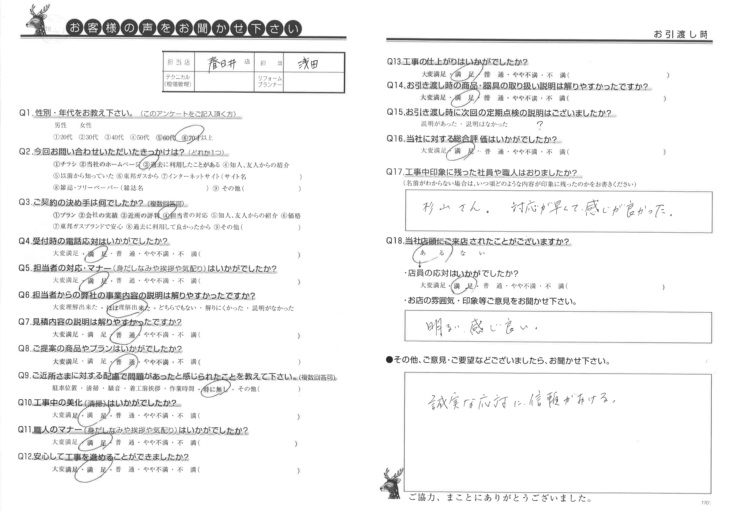 お客様の声をお聞かせ下さい
担当店 春日井 店 担当 浅田
テクニカル(現場管理) リフォームプランナー
Q1.性別・年代をお教え下さい。(このアンケートをご記入頂く方)
男性 女性
①20代 ②30代 ③40代 ④50代 ⑤60代 ⑥70才以上
Q2.今回お問い合わせいただいたきっかけは?(どれか1つ)
①チラシ ②当社のホームページ ③過去に利用したことがある ④知人、友人からの紹介
⑤以前から知っていた ⑥東邦ガスから ⑦インターネットサイト(サイト名 )
⑧雑誌・フリーペーパー(雑誌名 ) ⑨その他( )
Q3.ご契約の決め手は何でしたか?(複数回答可)
①プラン ②会社の実績 ③近所の評判 ④担当者の対応 ⑤知人、友人からの紹介 ⑥価格
⑦東邦ガスブランドで安心 ⑧過去に利用して良かったから ⑨その他( )
Q4.受付時の電話応対はいかがでしたか?
大変満足・満 足・普 通・やや不満・不 満( )
Q5.担当者の対応・マナー(身だしなみや挨拶や気配り)はいかがでしたか?
大変満足・満 足・普 通・やや不満・不 満( )
Q6.担当者からの弊社の事業内容の説明は解りやすかったですか?
大変理解出来た・ほぼ理解出来た・どちらでもない・解りにくかった・説明がなかった
Q7.見積内容の説明は解りやすかったですか?
大変満足・満 足・普 通・やや不満・不 満( )
Q8.ご提案の商品やプランはいかがでしたか?
大変満足・満 足・普 通・やや不満・不 満( )
Q9.ご近所さまに対する配慮で問題があったと感じられたことを教えて下さい。(複数回答可)
駐車位置・清掃・騒音・着工前挨拶・作業時間・特に無し・その他( )
Q10.工事中の美化(清掃)はいかがでしたか?
大変満足・満 足・普 通・やや不満・不 満( )
Q11.職人のマナー(身だしなみや挨拶や気配り)はいかがでしたか?
大変満足・満 足・普 通・やや不満・不 満( )
Q12.安心して工事を進めることができましたか?
大変満足・満 足・普 通・やや不満・不 満( )
お引渡し時
Q13.工事の仕上がりはいかがでしたか?
大変満足・満 足・普 通・やや不満・不 満( )
Q14.お引き渡し時の商品・器具の取り扱い説明は解りやすかったですか?
大変満足・満 足・普 通・やや不満・不 満( )
Q15.お引き渡し時に次回の定期点検の説明はございましたか?
説明があった・説明はなかった ?
Q16.当社に対する総合評価はいかがでしたか?
大変満足・満 足・普 通・やや不満・不 満( )
Q17.工事中印象に残った社員や職人はおりましたか?
(名前がわからない場合は、いつ頃どのような内容が印象に残ったのかをお書きください)
杉山さん。 対応が早くて感じが良かった。
Q18.当社店頭にご来店されたことがございますか?
ある ない
・店員の応対はいかがでしたか?
大変満足・満 足・普 通・やや不満・不 満( )
・お店の雰囲気・印象等ご意見をお聞かせ下さい。
明るい 感じ良い。
●その他、ご意見・ご要望などございましたら、お聞かせ下さい。
誠実な応対に信頼がおける。
ご協力、まことにありがとうございました。